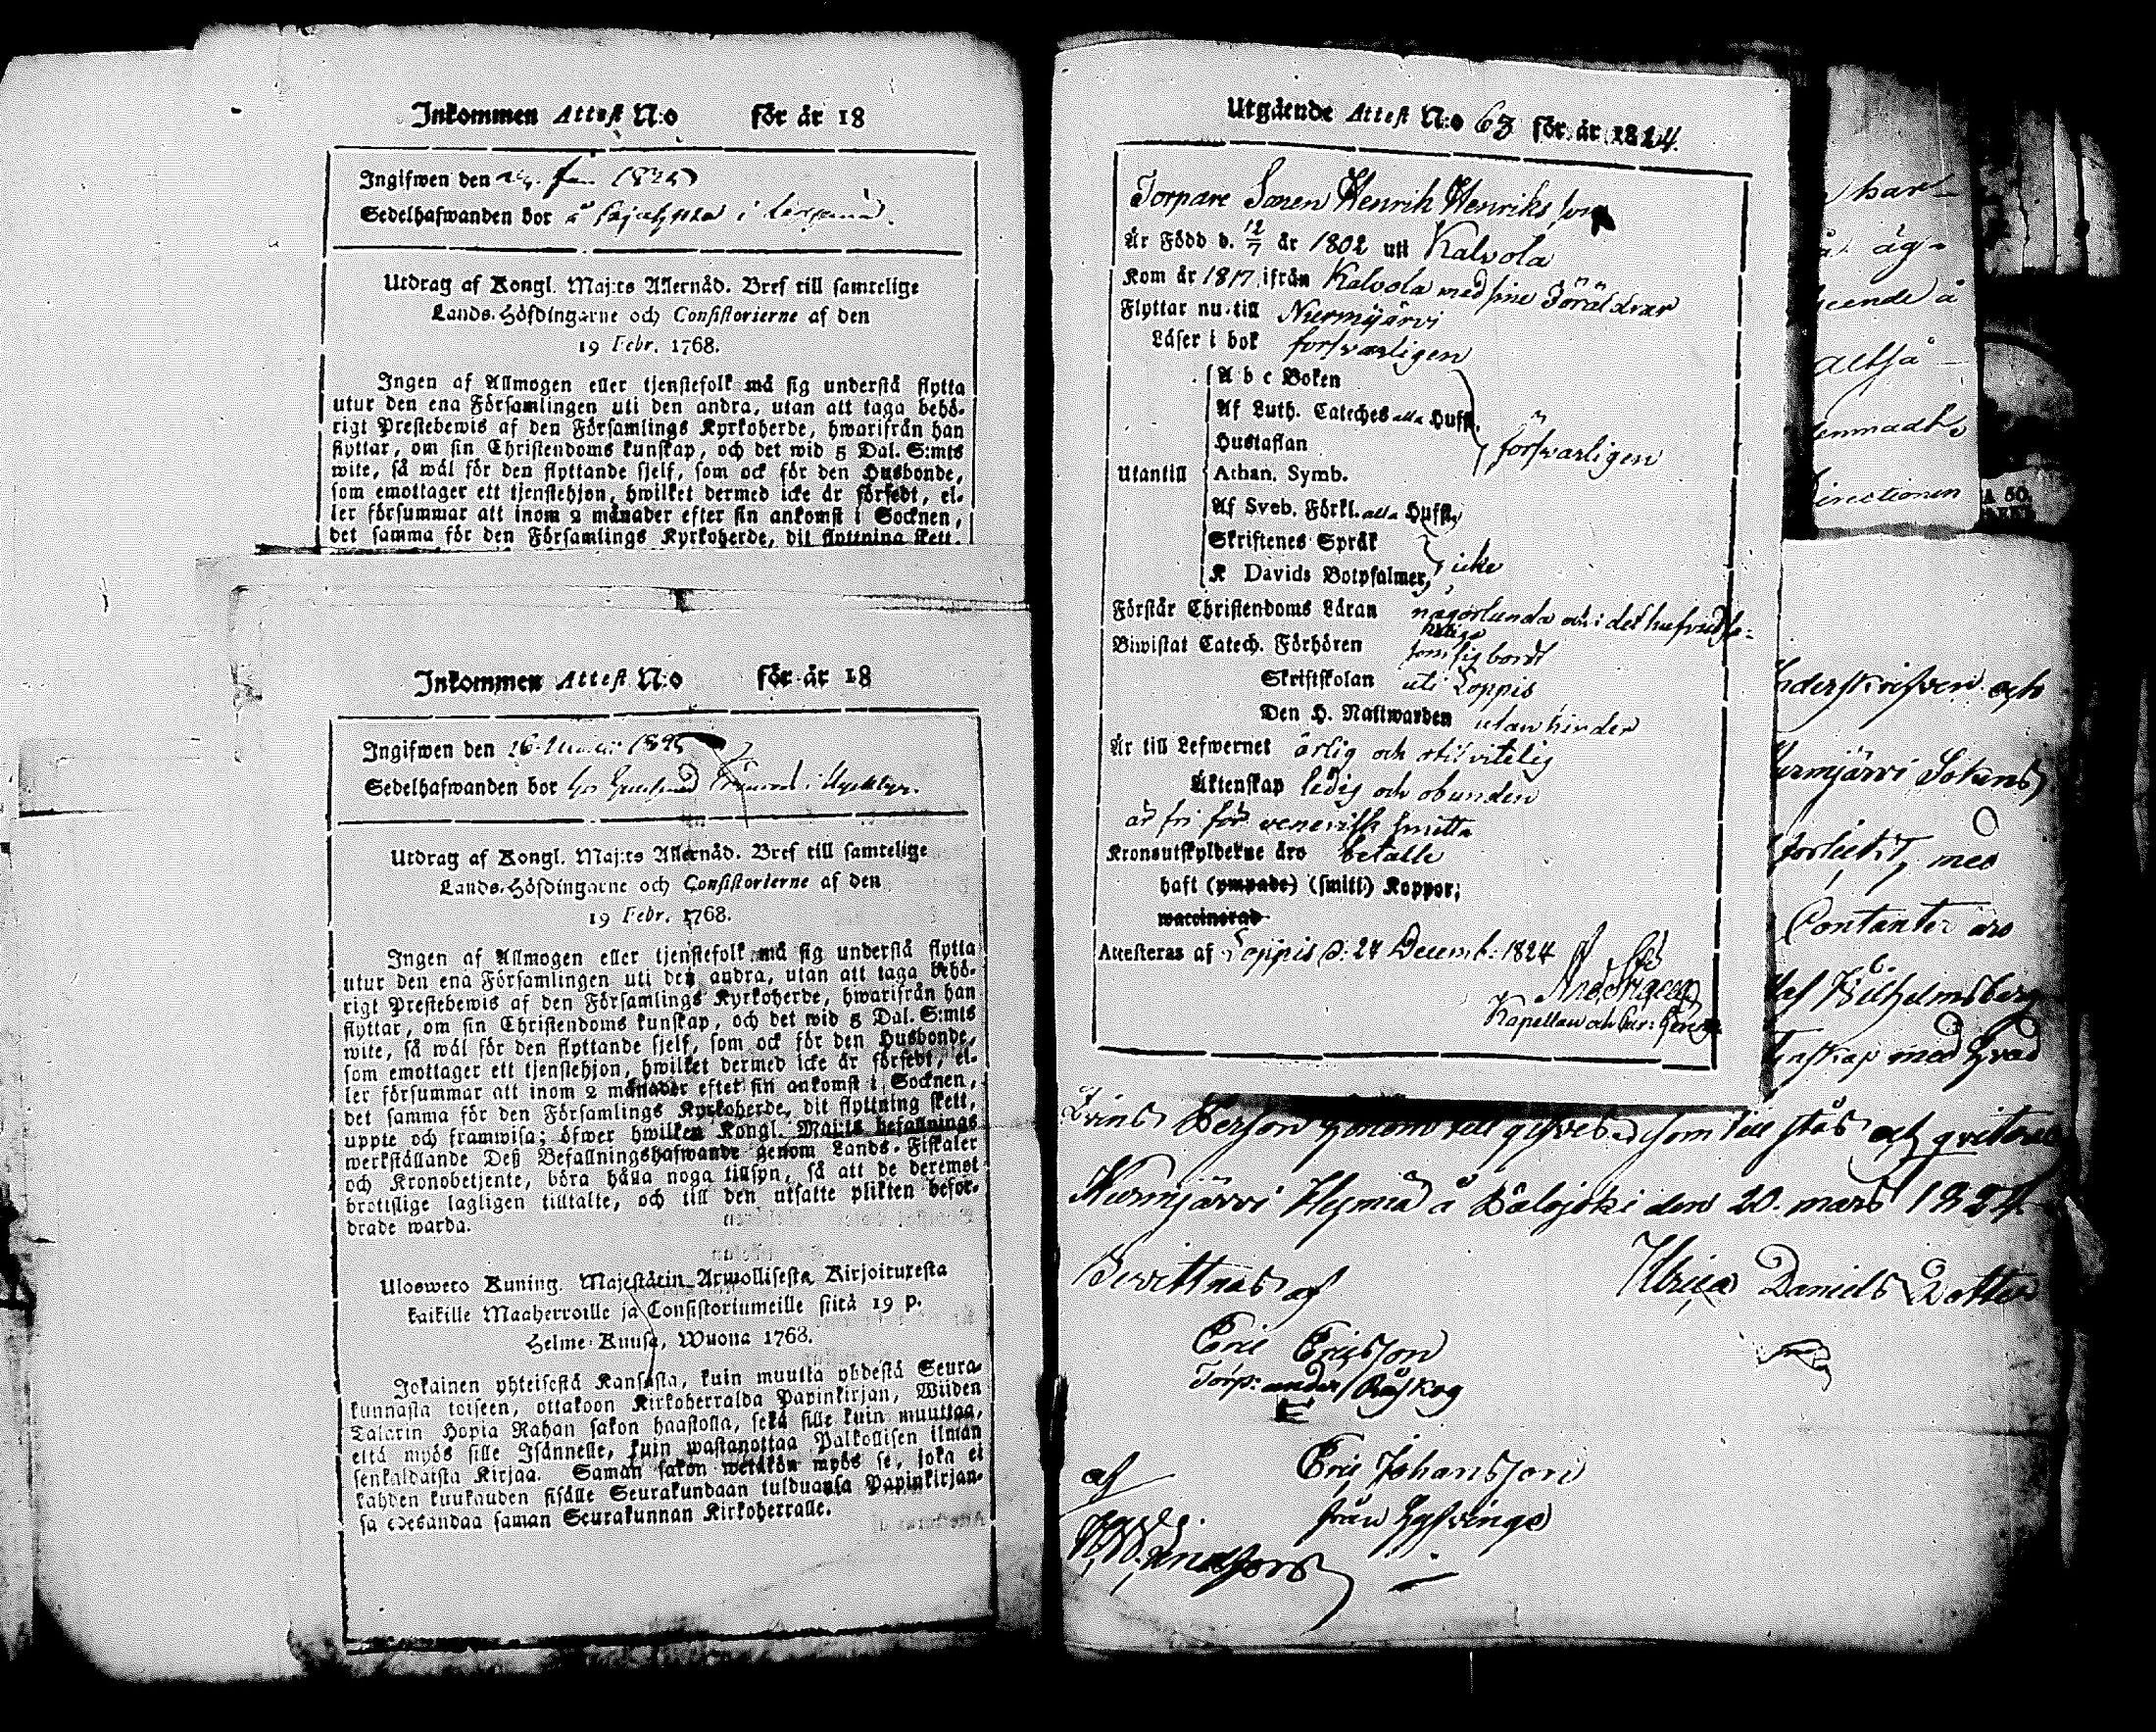 Inkommen Attest N:o för år 18
Ingifwen den 1825
Sedelhafwanden bor å i
Utdrag af Kongl. Maj:ts Allernåd. Bref till samtelige
Lands-Höfdingarne och Consistorierne af den
19 Febr. 1768.
Ingen af Allmogen eller tjenstefolk må sig understå flytta
utur den ena Församlingen uti den andra, utan att taga behö-
rigt Prestebewis af den Församlings Kyrkoherde, hwarifrån han
flyttar, om sin Christendoms kunskap, och det wid 5 Dal. S:mts
wite, så wäl för den flyttande sjelf, som ock för den Husbonde,
som emottager ett tjenstehjon, hwilket dermed icke är försedt, el-
ler försummar att inom 2 månader efter sin ankomst i Socknen,
det samma för den Församlings Kyrkoherde, dit flyttning skett,
Inkommen Attest N:o för år 18
Ingifwen den 26 1825
Sedelhafwanden bor hos i
Utdrag af Kongl. Maj:ts Allernåd. Bref till samtelige
Lands-Höfdingarne och Consistorierne af den
19 Febr. 1768.
Ingen af Allmogen eller tjenstefolk må sig understå flytta
utur den ena Församlingen uti den andra, utan att taga behö-
rigt Prestebewis af den Församlings Kyrkoherde, hwarifrån han
flyttar, om sin Christendoms kunskap, och det wid 5 Dal. S:mts
wite, så wäl för den flyttande sjelf, som ock för den Husbonde,
som emottager ett tjenstehjon, hwilket dermed icke är försedt, el-
ler försummar att inom 2 månader efter sin ankomst i Socknen,
det samma för den Församlings Kyrkoherde, dit flyttning skett,
uppte och framwisa; öfwer hwilken Kongl. Maj:ts befallnings
werkställande Deß Befallningshafwande genom Lands-Fiskaler
och Kronobetjente, böra hålla noga tillsyn, så att de deremot
brottslige lagligen tilltalte, och till den utsatte plikten beför-
drade warda.
Ulosweto Kuning. Majestätin Armollisesta Kirjoituxesta
kaikille Maaherroille ja Consistoriumeille siitä 19 p.
Helme-Kuusa, Wuona 1768.
Jokainen yhteisestä Kansasta, kuin muutta yhdestä Seura-
kunnasta toiseen, ottakoon Kirkoherralda Papinkirjan, Wiiden
Talarin Hopia Rahan sakon haastolla, sekä sille kuin muuttaa,
että myös sille Isännelle, kuin wastanottaa Palkollisen ilman
senkaldaista Kirjaa. Saman sakon wetäkön myös se, joka ei
kahden kuukauden sisälle Seurakundaan tulduansa Papinkirjan-
sa edesandaa saman Seurakunnan Kirkoherralle.
Utgående Attest N:o 63 för år 1824.
Torpare Sonen Henrik Henriksson
Är Född d. 12/7 år 1802 uti Kalvola
Kom år 1817 ifrån Kalvola med sine Föräldrar
Flyttar nu till Nurmijärvi
Läser i bok försvarligen
A b c Boken
Af Luth. Cateches alla Hufst.
Hustaflan försvarligen
Utantill Athan. Symb.
Af Sveb. Förkl. alla Hufst.
Skriftenes Språk
K Davids Botpsalmer, icke
Förstår Christendoms Läran någorlunda och i det hufvudsa-
kliga
Biwistat Catech. Förhören som sig bordt
Skriftskolan uti Loppis
Den H. Nattwarden utan hinder
Är till Lefwernet ärlig och otilvitelig
Äktenskap ledig och obunden
är fri för venerisk smitta
Kronoutskylderne äro betalte
haft (ympade) (smitt:) Koppor;
waccinerad
Attesteras af Loppis d. 24 Decemb: 1824
Kapellan och
har
äg-
ende å
altså
Directionen
Underskrifven och
Nurmjärvi Sokens
med
Contanter äro
af Wilhelmsberg
med
Person som och
Nurmjärvi Hymeå å Palojoki den 20. mars 1824
Bevittnas af Ulrica Daniels Dotter
Eric Ericsson
Torp: under Råskog
E
af Eric Johansson
från Gyfvinge